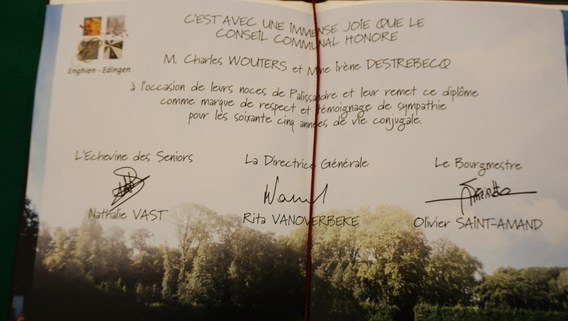 C'EST AVEC UNE IMMENSE JOIE QUE LE
CONSEIL COMMUNAL HONORE
Enghien - Edingen
M. Charles WOUTERS et Mme Irène DESTREBECQ
à l'occasion de leurs noces de Palissandre et leur remet ce diplôme
comme marque de respect et témoignage de sympathie
pour les soixante cinq années de vie conjugale.
L'Echevine des Seniors
La Directrice Générale
Le Bourgmestre
Nathalie VAST
Rita VANOVERBEKE
Olivier SAINT-AMAND